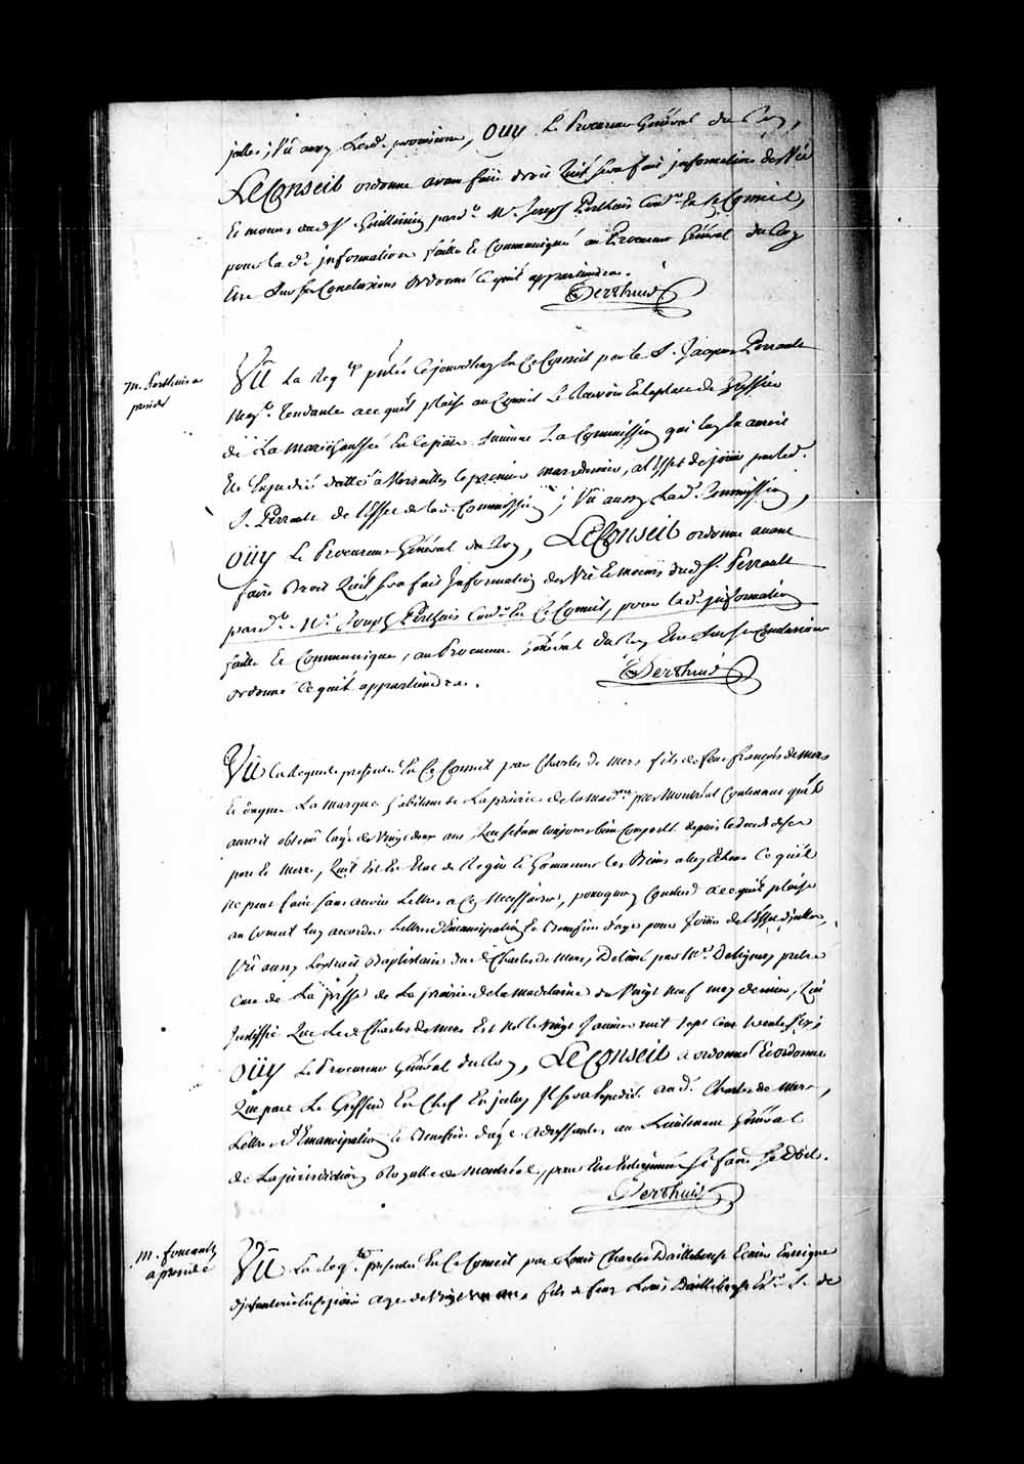 icelles ; Vû aussy Lord. provisoire, OUY Le Procureur Général du Roy,
LE Conseil ordonne avant faire droit Quil sera fait jnformation des Vie
Et moeurs dud. Sr. Guillimin pard.t Mr. Joseph Perthuis Conr. En ce Conseil,
pour lad. jnformation faitte Et Communiqué au Procureur Général du Roy
Etre Sur ses Conclusions Ordonné Ce quil appartiendra.
Perthuis
m. perthuis a
presidé
VÛ La Reqte. pntée Cejourdhuy En Ce Conseil par le S. Jacques Perrault
Negt. Tendante a ce quil plaise au Conseil Le Recevoir En la place de
de La Maréchaussée En ce païs Suivant La Commission qui luy En auroit
Eté Expediée dattée a Versailles le premier mars dernier, a l'Effet de jouir par led.
S. Perrault de l'Effet de lad. Commission ; Vû aussy lad. Commission,
OÜY Le Procureur Général du Roy, LE Conseil ordonne avant
faire Droit Quil sera fait Jnformation des Vie Et moeurs dud. Sr. Perrault
pard.t Mr. Joseph Perthuis Conr. En Ce Conseil, pour lad. jnformation
faitte Et Communiquée, au Procureur Général du Roy Etre Sur ses Conclusions
ordonné Ce quil appartiendra.
Perthuis
VÛ la Requeste presentée En Ce Conseil par Charles de Mers fils de feue françois de mers
Et La marque habitans de La prairie de la mad.ne pres Montréal Contenant quil
auroit obtenu lage de Vingt deux ans, Quil setant toujours bien Comporté depuis le deceds de ses
pere Et Mere, Quil Est En Etat de Regir Et Gouverner les Biens a luy Echeus Ce quil
ne peut faire sans avoir Lettres a Ce Necessaires, pourquoy Conclud a ce quil plaise
au Conseil luy accorder Lettres d'Emancipation Et Benefice d'age pour Jouir de l'Effet d'jcelles,
Vû aussy Lextrait Baptistaire dud. Charles de Mers, Delivré par Mr. Deligneris prestre
Curé de La pssse. de La prairie de la Madelaine du Vingt Neuf may dernier, Qui
Justiffie Que led. Charles de Mers Est Né le vingt Janvier mil sept cent trente six ;
OÜY Le Procureur Général du Roy, LE Conseil a ordonné Et ordonne
Que par Le Greffier En Chef En jceluy Il sera Expedié aud. Charles de Mers,
Lettres d'Emancipation Et Benefice d'age adressantes au Lieutenant Général
de La jurisdiction Royalle de Montréal, pour Etre Enterinnées Si faire Se Doit.
Perthuis
m. foucault
a presidé
VÛ La Reqte. presentée En Ce Conseil par Louis Charles Dailleboust Ecuier Enseigne
d'jnfanterie En Ce païs agé de Vingt ans fils de feu Louis Dailleboust Ecr. S. de